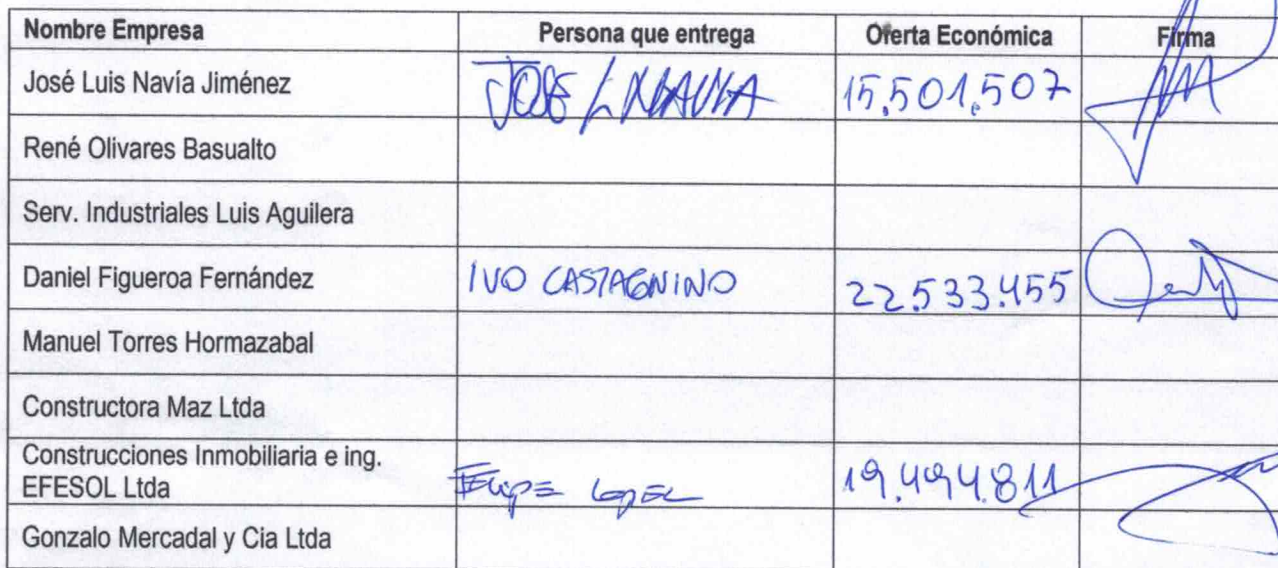 Nombre Empresa Persona que entrega Oferta Económica Firma
José Luis Navía Jiménez JOSE L NAVIA 15.501.507
René Olivares Basualto
Serv. Industriales Luis Aguilera
Daniel Figueroa Fernández IVO CASTAGNINO 22.533.455
Manuel Torres Hormazabal
Constructora Maz Ltda
Construcciones Inmobiliaria e ing.
EFESOL Ltda FELIPE LOPEZ 19.494.811
Gonzalo Mercadal y Cia Ltda